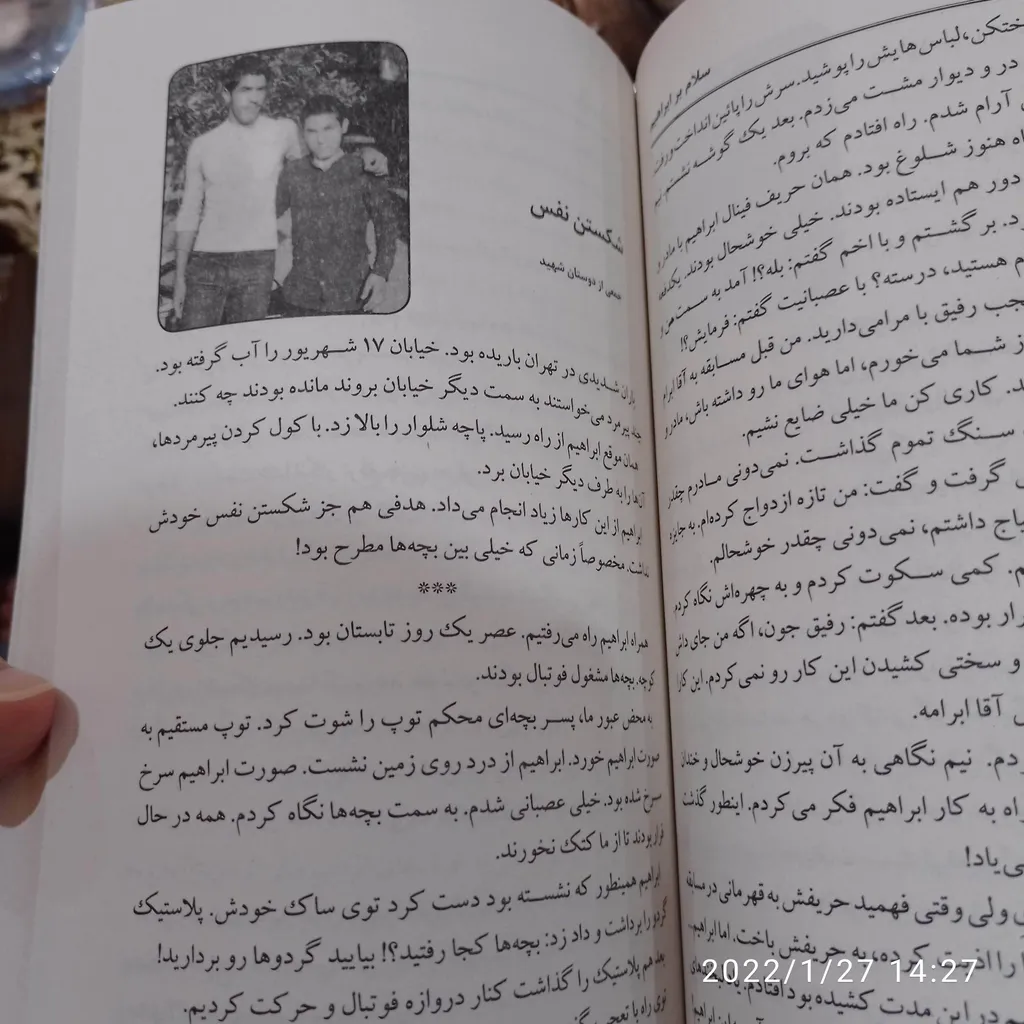 سلام بر ابراهیم
ختکن، لباس‌هایش را پوشید. سرش را پائین انداخت و رفت.
در و دیوار مشت می‌زدم. بعد یک گوشه نشستم. نیم
آرام شدم. راه افتادم که بروم.
هنوز شلوغ بود. همان حریف فینال ابراهیم با مادر و
دور هم ایستاده بودند. خیلی خوشحال بودند. یکدفعه
بر گشتم و با اخم گفتم: بله؟! آمد به سمت من و
هستید، درسته؟ با عصبانیت گفتم: فرمایش؟!
عجب رفیق با مرامی دارید. من قبل مسابقه به آقا ابرام
شما می‌خورم، اما هوای ما رو داشته باش، مادر و
کاری کن ما خیلی ضایع نشیم.
سنگ تموم گذاشت. نمی‌دونی مادرم چقدر
گرفت و گفت: من تازه ازدواج کرده‌ام. به جایزه
داشتم، نمی‌دونی چقدر خوشحالم.
کمی سکوت کردم و به چهره‌اش نگاه کردم.
بوده. بعد گفتم: رفیق جون، اگه من جای داش
و سختی کشیدن این کار رو نمی‌کردم. این کارا
آقا ابرامه.
نیم نگاهی به آن پیرزن خوشحال و خندان
به کار ابراهیم فکر می‌کردم. اینطور گذشت
یاد!
ولی وقتی فهمید حریفش به قهرمانی در مسابقه
کرده، به حریفش باخت. اما ابراهیم...
در این مدت کشیده بود افتادم.
شکستن نفس
جمعی از دوستان شهید
باران شدیدی در تهران باریده بود. خیابان ۱۷ شهریور را آب گرفته بود.
چند پیرمرد می‌خواستند به سمت دیگر خیابان بروند مانده بودند چه کنند.
همان موقع ابراهیم از راه رسید. پاچه شلوار را بالا زد. با کول کردن پیرمردها،
آن‌ها را به طرف دیگر خیابان برد.
ابراهیم از این کارها زیاد انجام می‌داد. هدفی هم جز شکستن نفس خودش
نداشت. مخصوصاً زمانی که خیلی بین بچه‌ها مطرح بود!
***
همراه ابراهیم راه می‌رفتیم. عصر یک روز تابستان بود. رسیدیم جلوی یک
کوچه. بچه‌ها مشغول فوتبال بودند.
به محض عبور ما، پسر بچه‌ای محکم توپ را شوت کرد. توپ مستقیم به
صورت ابراهیم خورد. ابراهیم از درد روی زمین نشست. صورت ابراهیم سرخ
سرخ شده بود. خیلی عصبانی شدم. به سمت بچه‌ها نگاه کردم. همه در حال
فرار بودند تا از ما کتک نخورند.
ابراهیم همینطور که نشسته بود دست کرد توی ساک خودش. پلاستیک
گردو را برداشت و داد زد: بچه‌ها کجا رفتید؟! بیایید گردوها رو بردارید!
بعد هم پلاستیک را گذاشت کنار دروازه فوتبال و حرکت کردیم.
توی راه با تعجب
2022/1/27 14:27